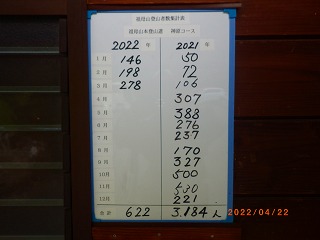 祖母山登山者数集計表
祖母山本登山道 神原コース
2022年 2021年
1月 146 50
2月 198 72
3月 278 106
4月 307
5月 388
6月 276
7月 237
8月 170
9月 327
10月 500
11月 530
12月 221
合計 622 3,184人
2022/04/22